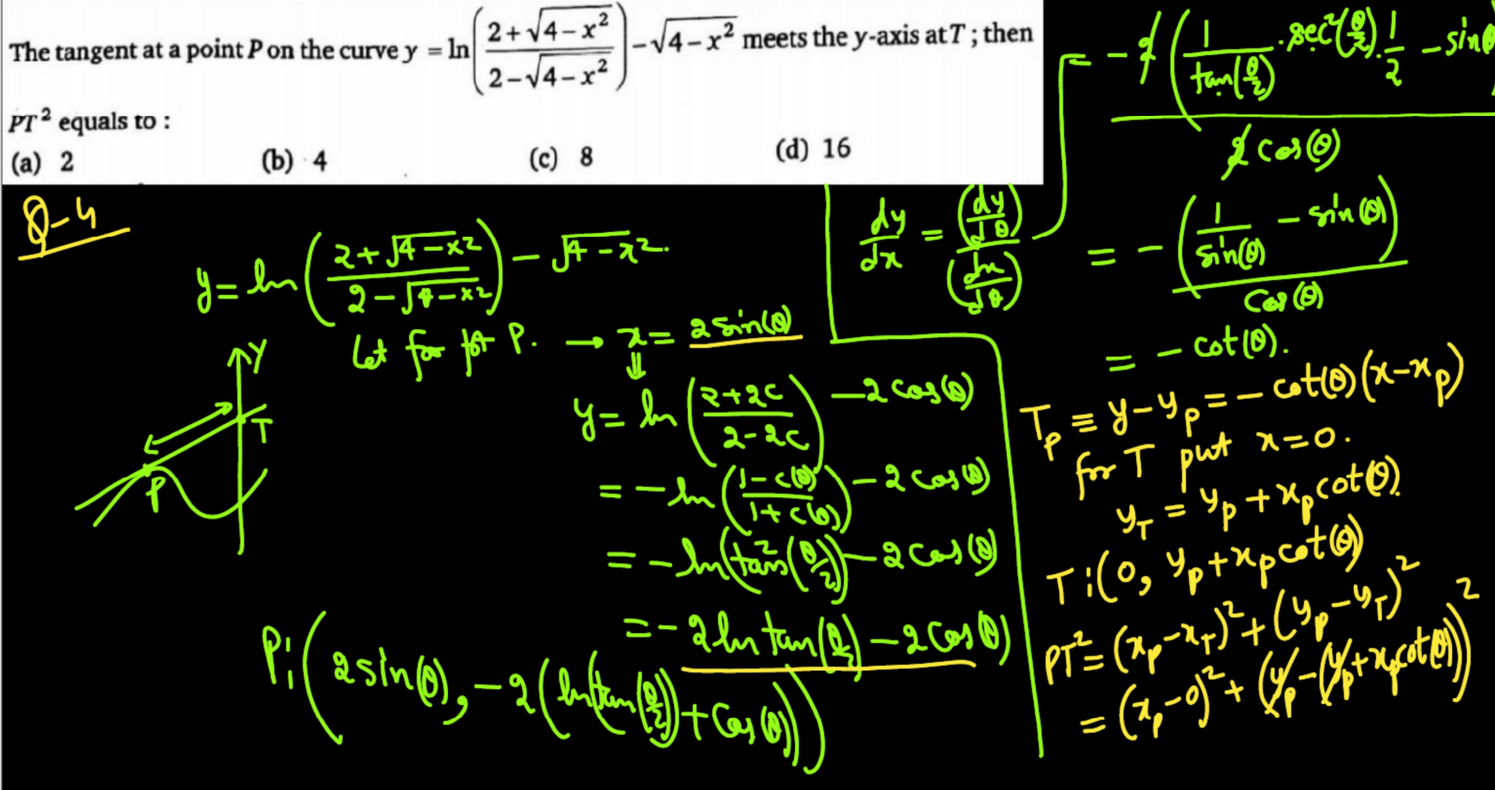 The tangent at a point P on the curve y = ln((2+√(4-x²))/(2-√(4-x²))) - √(4-x²) meets the y-axis at T ; then
PT² equals to :
(a) 2 (b) 4 (c) 8 (d) 16
Q-4
y = ln((2+√(4-x²))/(2-√(4-x²))) - √(4-x²).
Let for pt P. → x = 2 sin(θ)
⇓
y = ln((2+2c)/(2-2c)) - 2 cos(θ)
= - ln((1-c(θ))/(1+c(θ))) - 2 cos(θ)
= - ln(tan²(θ/2)) - 2 cos(θ)
= - 2 ln tan(θ/2) - 2 cos(θ)
Y
T
P
P: (2 sin(θ), -2(ln(tan(θ/2)) + cos(θ)))
dy/dx = (dy/dθ)/(dx/dθ)
= -2(1/tan(θ/2) · sec²(θ/2) · 1/2 - sinθ
2 cos(θ)
= -(1/sin(θ) - sin(θ))/cos(θ)
= - cot(θ).
T_P ≡ y - y_P = - cot(θ)(x - x_P)
for T put x = 0.
y_T = y_P + x_P cot(θ).
T: (0, y_P + x_P cot(θ))
PT² = (x_P - x_T)² + (y_P - y_T)²
= (x_P - 0)² + (y_P - (y_P + x_P cot(θ)))²